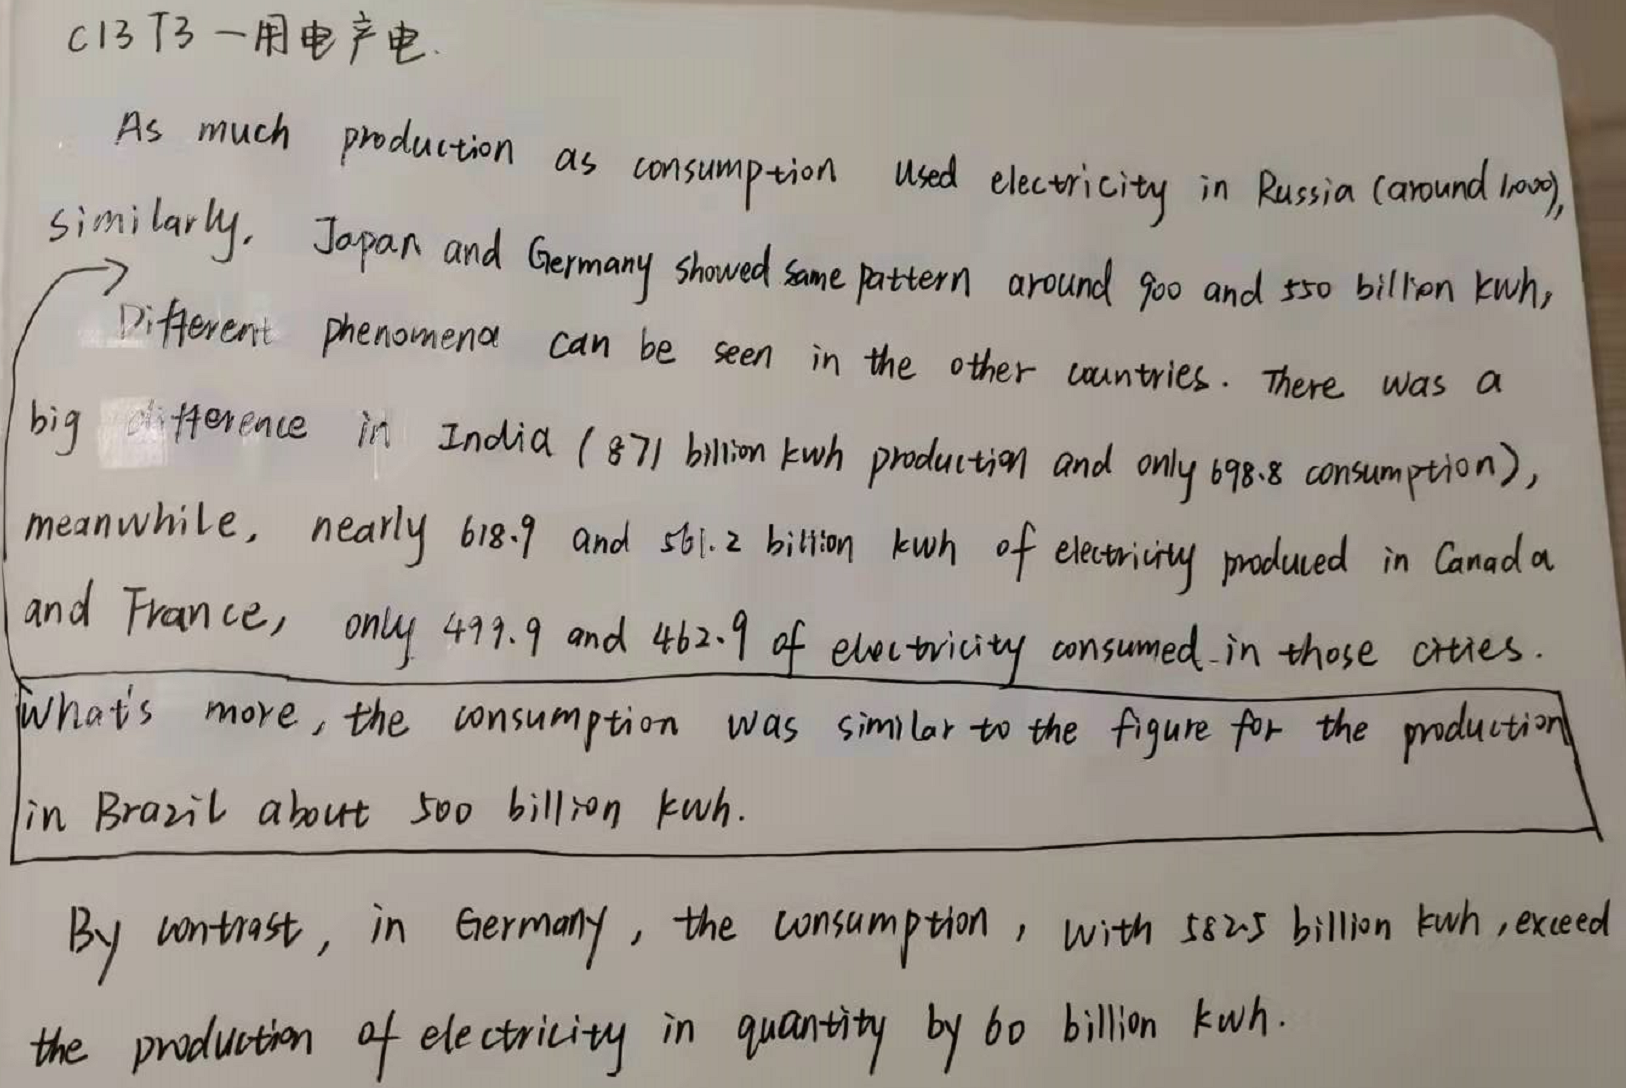 C13 T3 一用电产电.
As much production as consumption used electricity in Russia (around 1,000),
similarly, Japan and Germany showed same pattern around 900 and 550 billion kwh,
Different phenomena can be seen in the other countries. There was a
big difference in India (871 billion kwh production and only 698.8 consumption),
meanwhile, nearly 618.9 and 561.2 billion kwh of electricity produced in Canada
and France, only 499.9 and 462.9 of electricity consumed in those cities.
What's more, the consumption was similar to the figure for the production
in Brazil about 500 billion kwh.
By contrast, in Germany, the consumption, with 582.5 billion kwh, exceed
the production of electricity in quantity by 60 billion kwh.